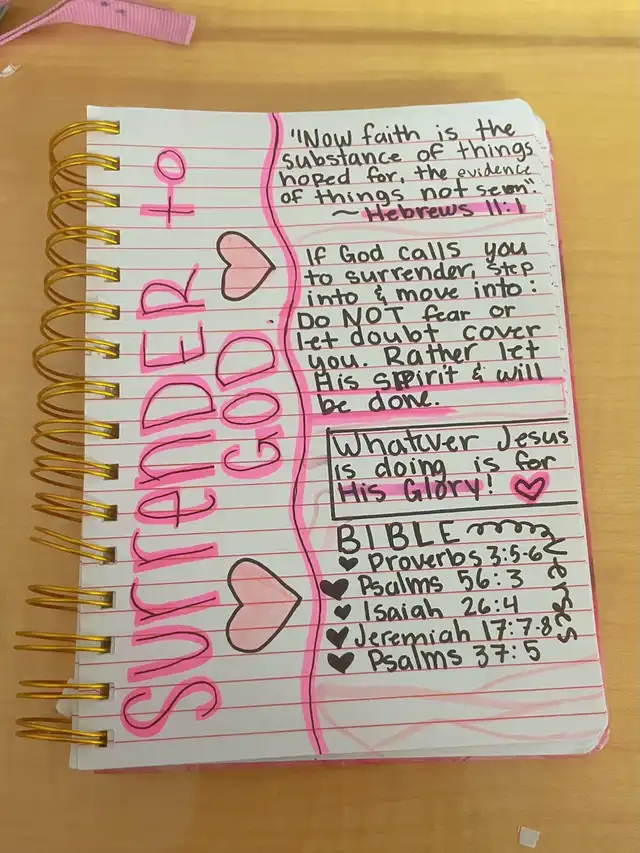 Surrender to
GOD
"Now faith is the
substance of things
hoped for, the evidence
of things not seen".
~ Hebrews 11:1
If God calls you
to surrender, step
into & move into:
Do NOT fear or
let doubt cover
you. Rather let
His spirit & will
be done.
Whatever Jesus
is doing is for
His Glory!
BIBLE verses
Proverbs 3:5-6
Psalms 56:3
Isaiah 26:4
Jeremiah 17:7-8
Psalms 37:5